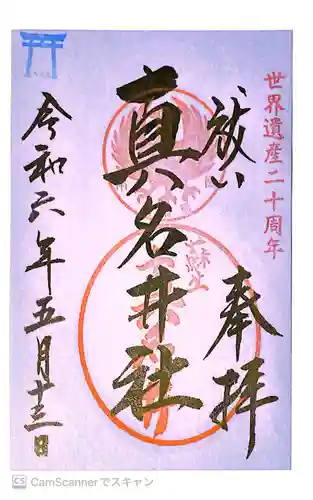 世界遺産二十周年
祓い
奉拝
蘇生
真名井社
令和六年五月十三日
CS CamScannerでスキャン